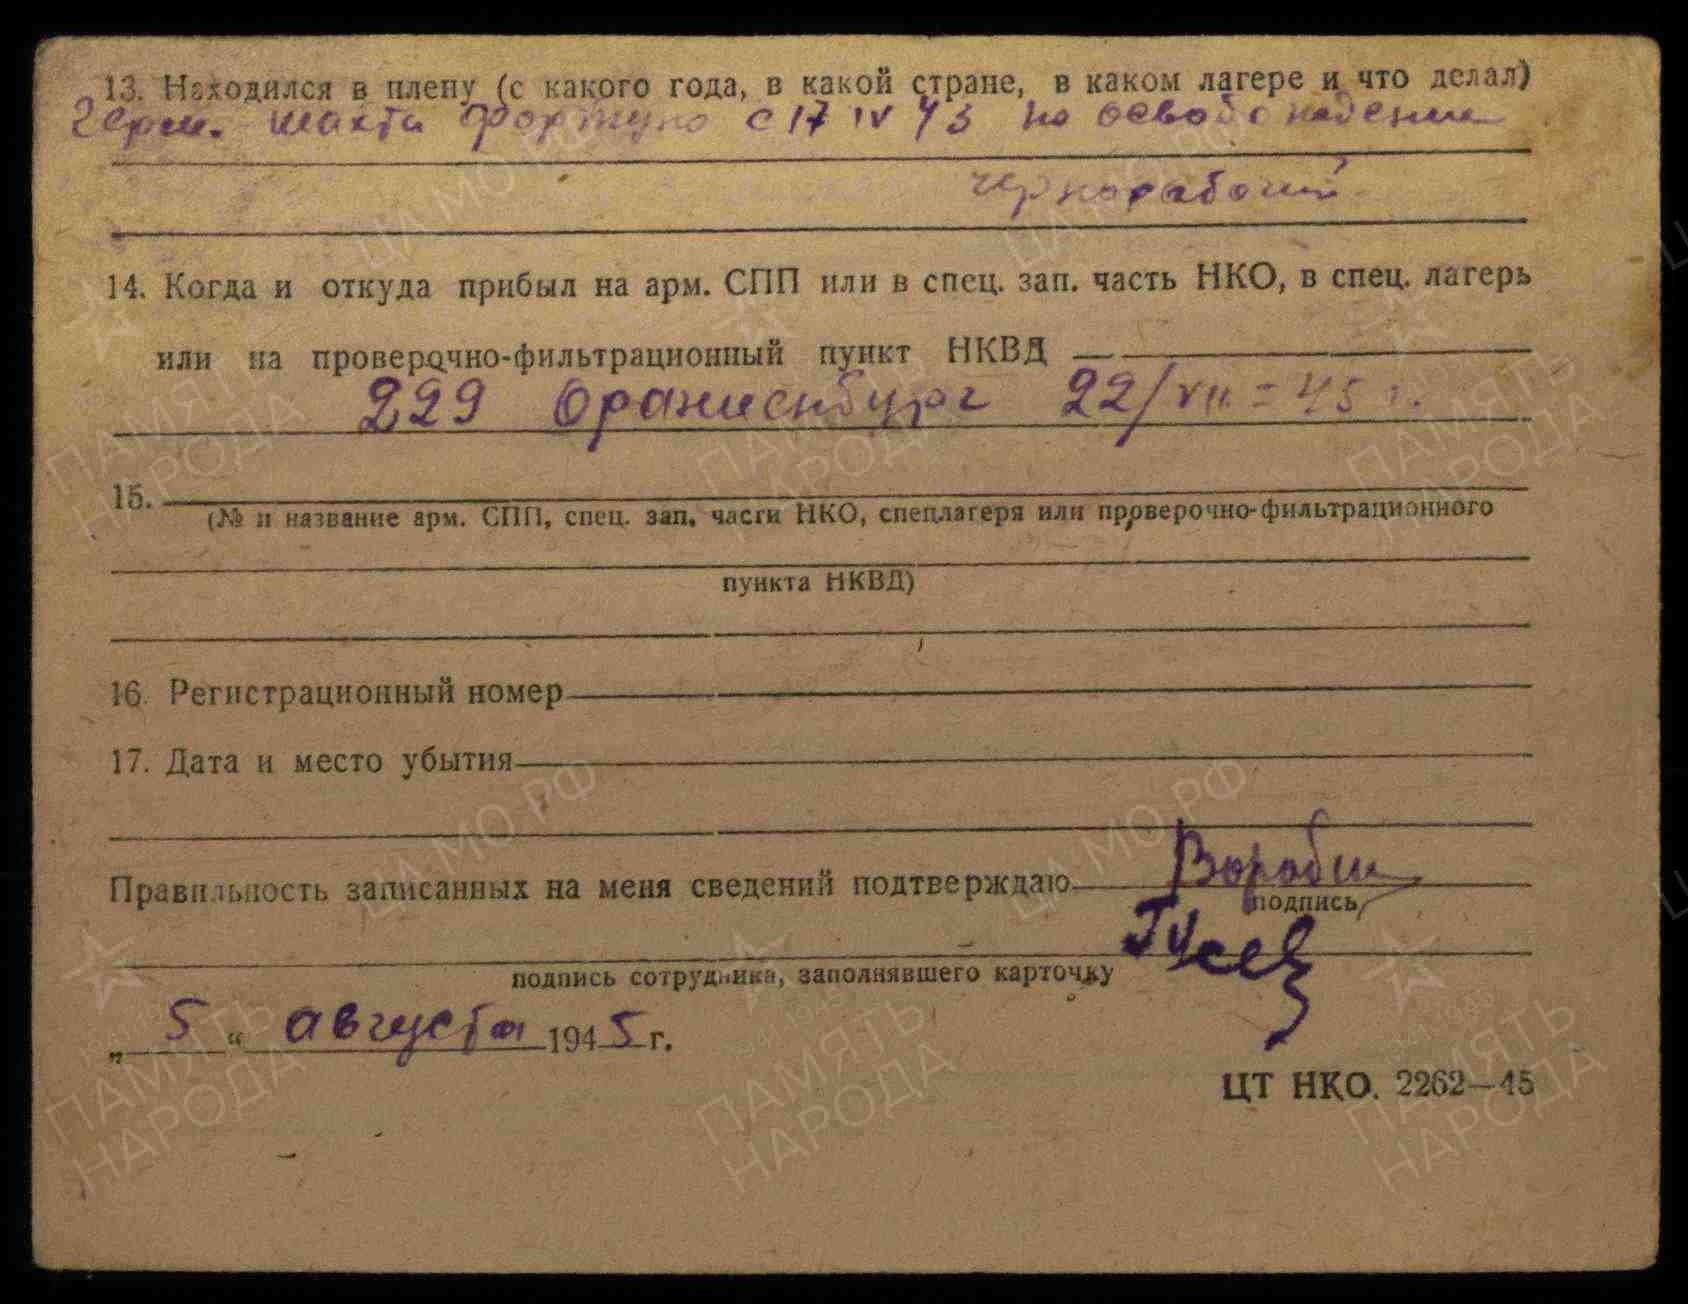 13. Находился в плену (с какого года, в какой стране, в каком лагере и что делал)
Герм. шахта Фортуно с 17 IV 43 по освобождение
чернорабочий
14. Когда и откуда прибыл на арм. СПП или в спец. зап. часть НКО, в спец. лагерь
или на проверочно-фильтрационный пункт НКВД
229 Ораниенбург 22/VII – 45 г.
15.
(№ и название арм. СПП, спец. зап. части НКО, спецлагеря или проверочно-фильтрационного
пункта НКВД)
16. Регистрационный номер
17. Дата и место убытия
Правильность записанных на меня сведений подтверждаю
подпись
Гусев
подпись сотрудника, заполнявшего карточку
„ 5 “ августа 1945 г.
ЦТ НКО. 2262—45
ЦА МО РФ
ПАМЯТЬ
НАРОДА